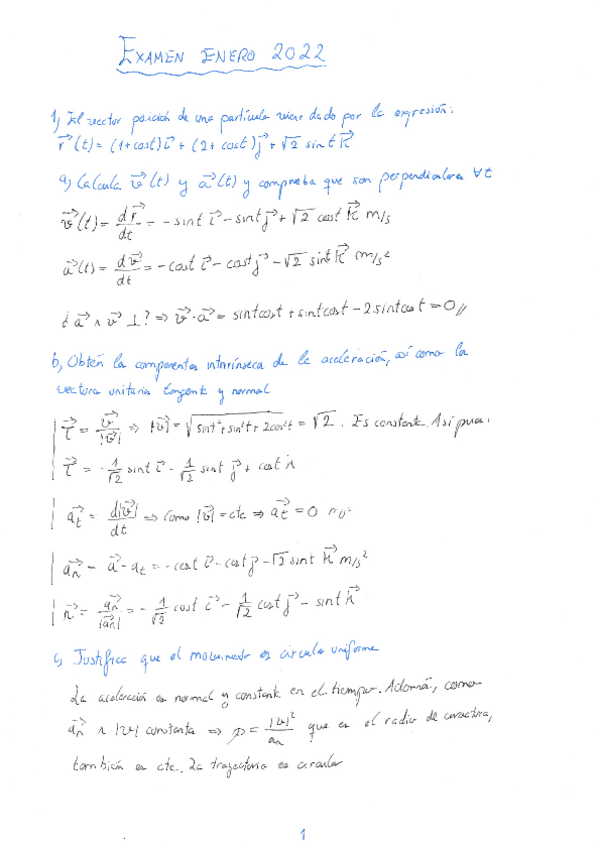 EXAMEN ENERO 2022
1) El vector posición de una partícula viene dado por la expresión:
r⃗(t) = (1+cost)i⃗ + (2+cost)j⃗ + √2 sint k⃗
a) Calcula v⃗(t) y a⃗(t) y comprueba que son perpendiculares ∀t
v⃗(t) = dr⃗/dt = -sint i⃗ - sint j⃗ + √2 cost k⃗ m/s
a⃗(t) = dv⃗/dt = -cost i⃗ - cost j⃗ - √2 sint k⃗ m/s²
¿ a⃗ ∧ v⃗ ⊥? ⇒ v⃗·a⃗ = sintcost + sintcost - 2sintcost = 0 //
b) Obtén la componentes intrínseca de la aceleración, así como la
vectores unitarios tangente y normal
τ⃗ = v⃗/|v⃗| ⇒ |v⃗| = √(sin²t + sin²t + 2cos²t) = √2. Es constante. Así pues.
τ⃗ = -1/√2 sint i⃗ - 1/√2 sint j⃗ + cost k
a⃗t = d|v⃗|/dt ⇒ Como |v⃗| = cte ⇒ a⃗t = 0
a⃗n = a⃗ - at = -cost i⃗ - cost j⃗ - √2 sint k⃗ m/s²
n⃗ = a⃗n/|a⃗n| = -1/√2 cost i⃗ - 1/√2 cost j⃗ - sint k⃗
c) Justifica que el movimiento es circular uniforme
La aceleración es normal y constante en el tiempo. Además, como
a⃗n ∧ |v⃗| constante ⇒ ρ = |v⃗|²/an que es el radio de curvatura,
también es cte. La trayectoria es circular
1